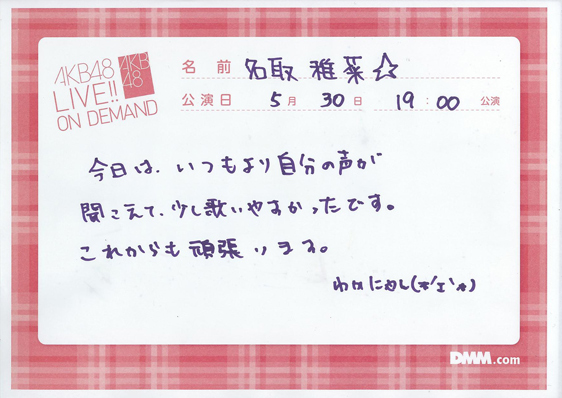 AKB48
LIVE!!
ON DEMAND
AKB
48
名前 名取 雅菜☆
公演日 5月 30日 19:00 公演
今日は、いつもより自分の声が
聞こえて、少し歌いやすかったです。
これからも頑張ります。
DMM.com